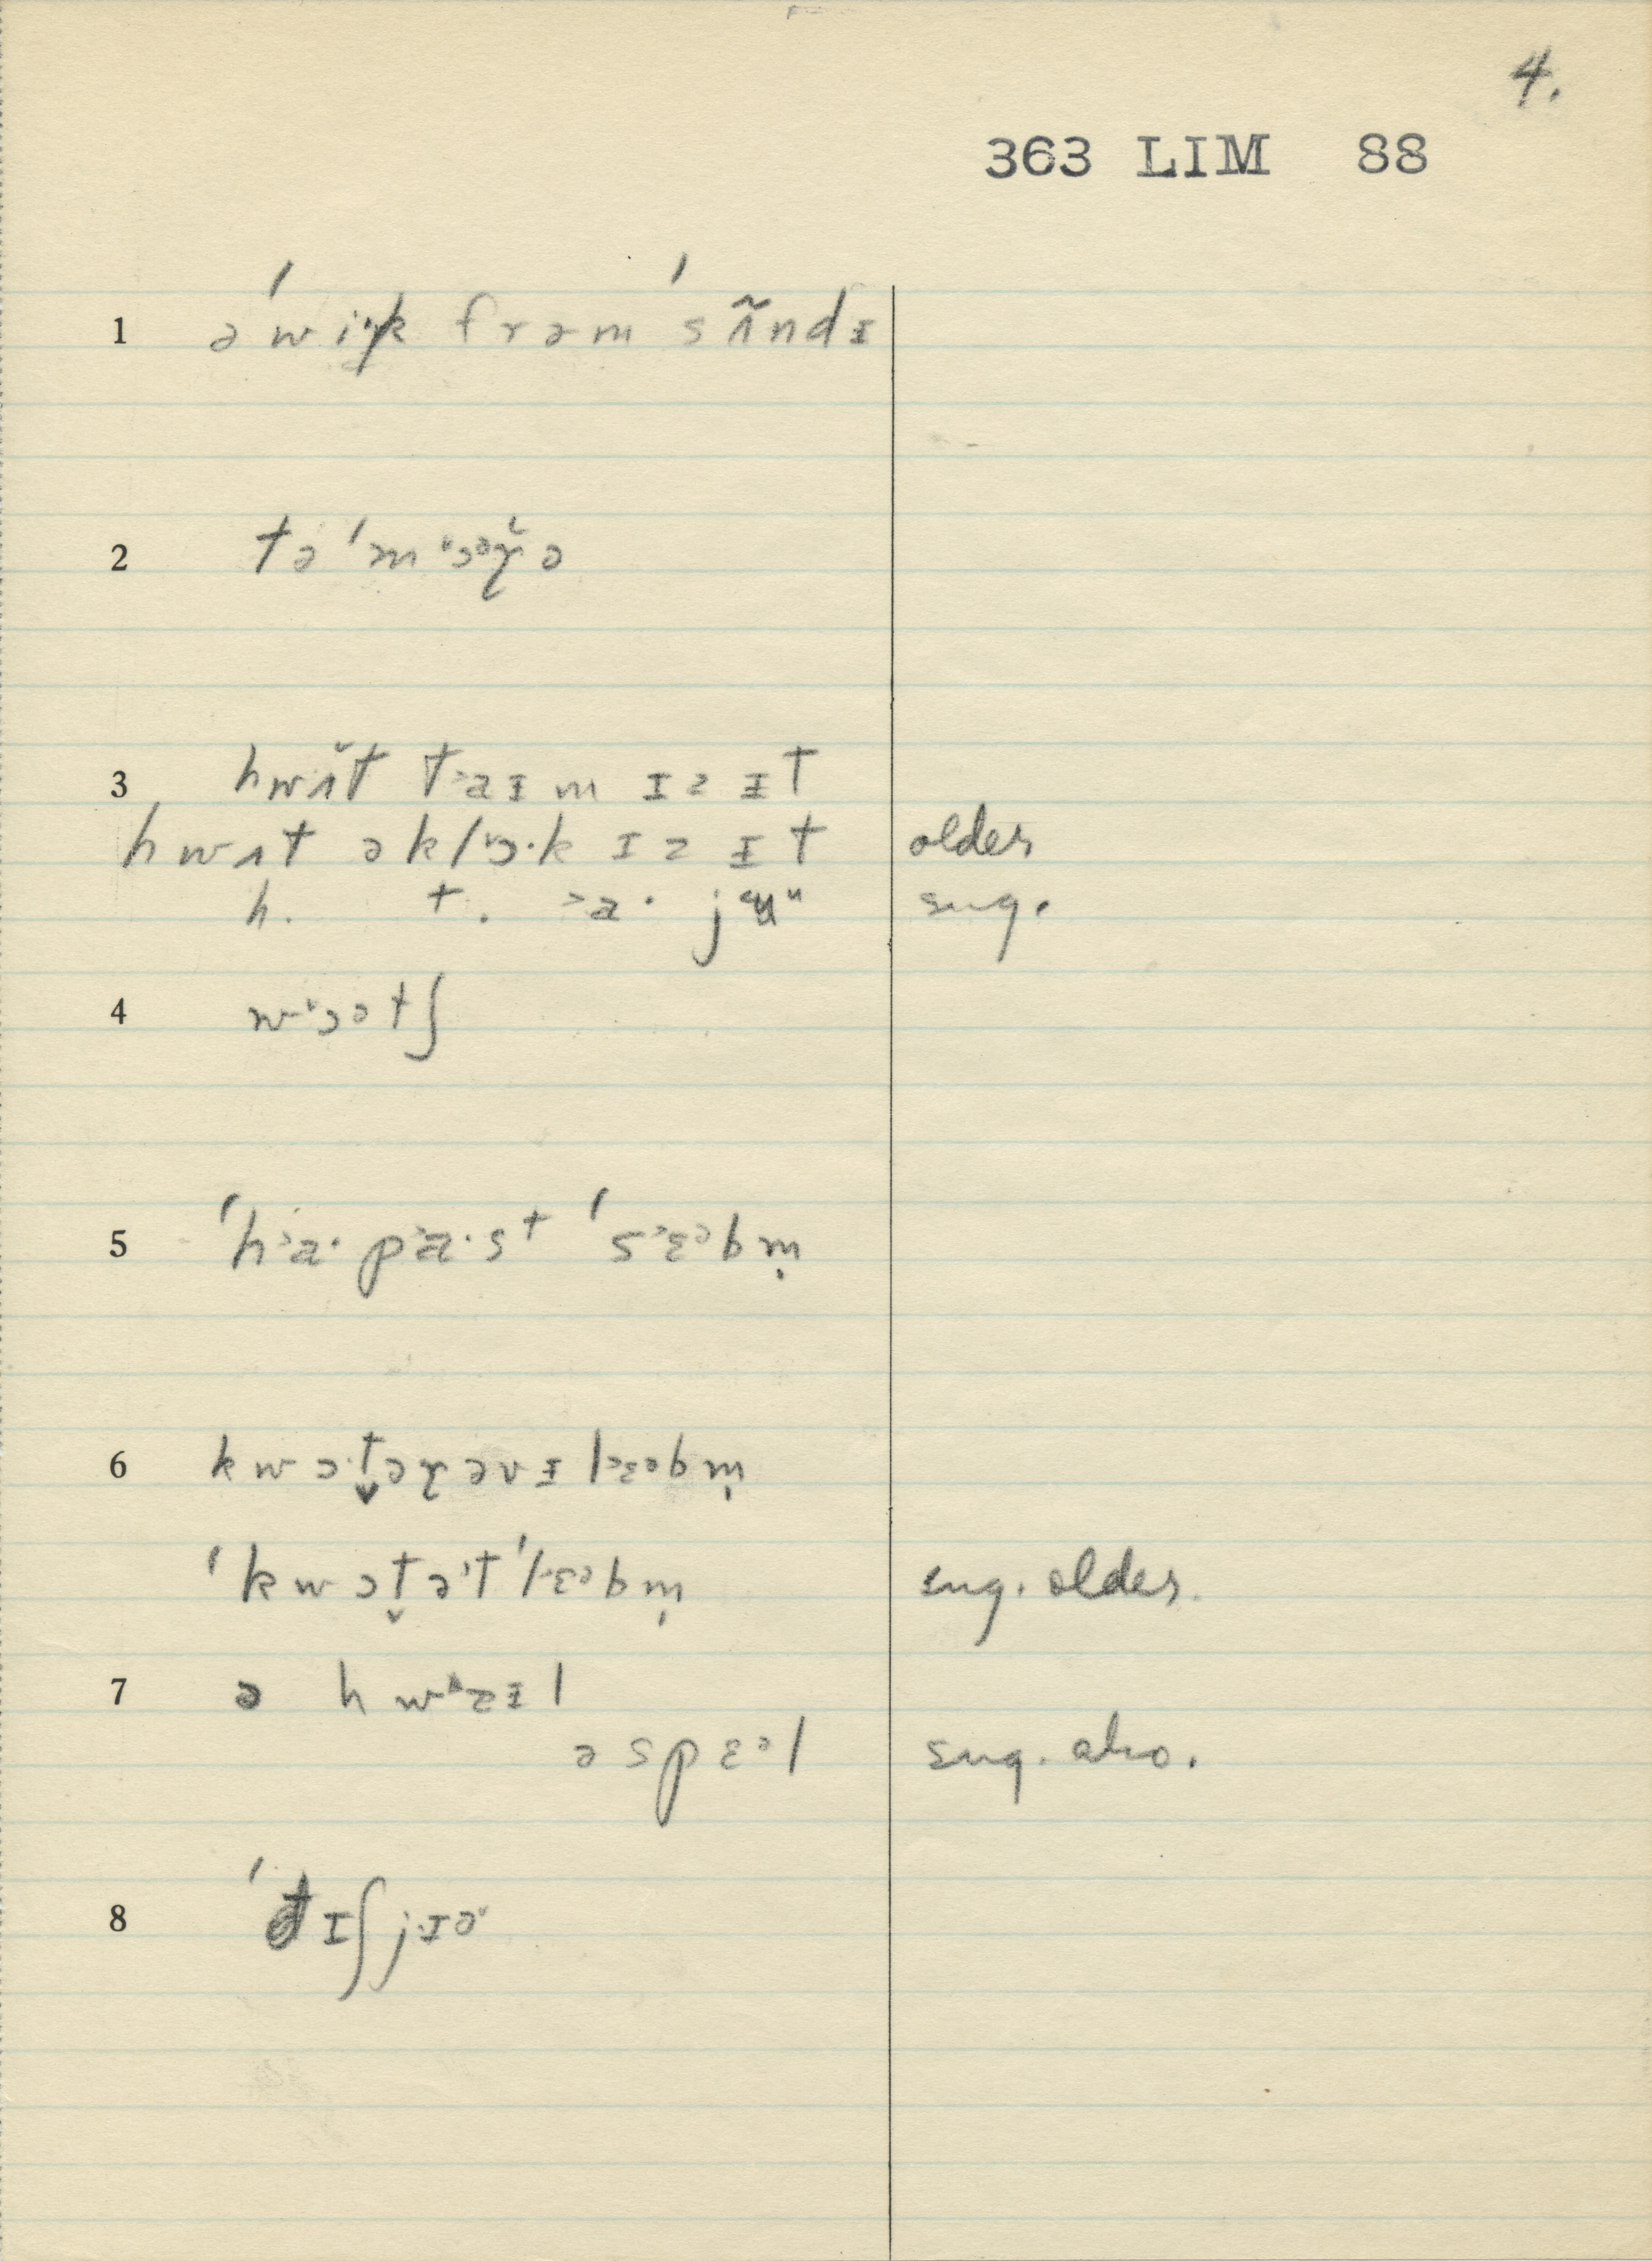 4.
363 LIM 88
1 ə ˈwik frəm ˈsʌ̃ndɪ
2 tə ˈmɔəɼə
3 hwʌt taɪm ɪz ɪt
hwʌt əklɔ·k ɪz ɪt older
h. t. a· ju sug.
4 wɔətʃ
5 ˈha· pa·st ˈsɛəbm̩
6 kwɔ·t̬əɼ əv ɪlɛəbm̩
ˈkwɔt̬ə t ˈlɛəbm̩ sug. older.
7 ə hwɪl
ə spɛəl sug. also.
8 ˈdɪʃ jɪə